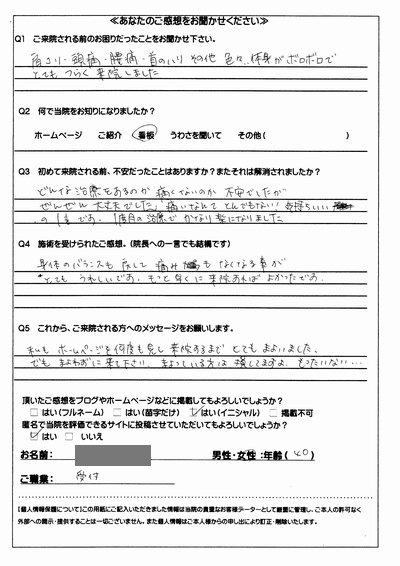 ≪あなたのご感想をお聞かせください≫
Q1 ご来院される前のお困りだったことをお聞かせ下さい。
肩コリ・頭痛・腰痛・首のハリ その他 色々、体身がボロボロで
とてもつらく 来院しました
Q2 何で当院をお知りになりましたか?
ホームページ ご紹介 看板 うわさを聞いて その他( )
Q3 初めて来院される前、不安だったことはありますか?またそれは解消されましたか?
どんな治療をあるのか 痛くないのか 不安でしたが
ぜんぜん 大丈夫でした! 痛いなんて とんでもない! 気持ちいい
の1言です。1度目の治療で かなり楽になりました
Q4 施術を受けられたご感想。(院長への一言でも結構です)
身体のバランスも 戻して 痛み も なくなる事が
とても うれしいです。もっと早くに 来院すれば よかったです。
Q5 これから、ご来院される方へのメッセージをお願いします。
私も ホームページを何度も見し 来院するまで とてもまよいました。
でも まよわずに 来て下さい。まよっている方は 損してますよ。もったいない…
頂いたご感想をブログやホームページなどに掲載してもよろしいでしょうか?
□はい(フルネーム) □はい(苗字だけ) ☑はい(イニシャル) □掲載不可
匿名で当院を評価できるサイトに投稿させていただいてもよろしいでしょうか?
☑はい □いいえ
お名前: 男性・女性:年齢( 40 )
ご職業: 受付
【個人情報保護について】この用紙にご記入いただきました情報は当院の貴重なお客様データーとして厳重に管理し、ご本人の許可なく
外部への開示・提供することは一切ございません。また個人情報はご本人様からの申し出により訂正・削除いたします。